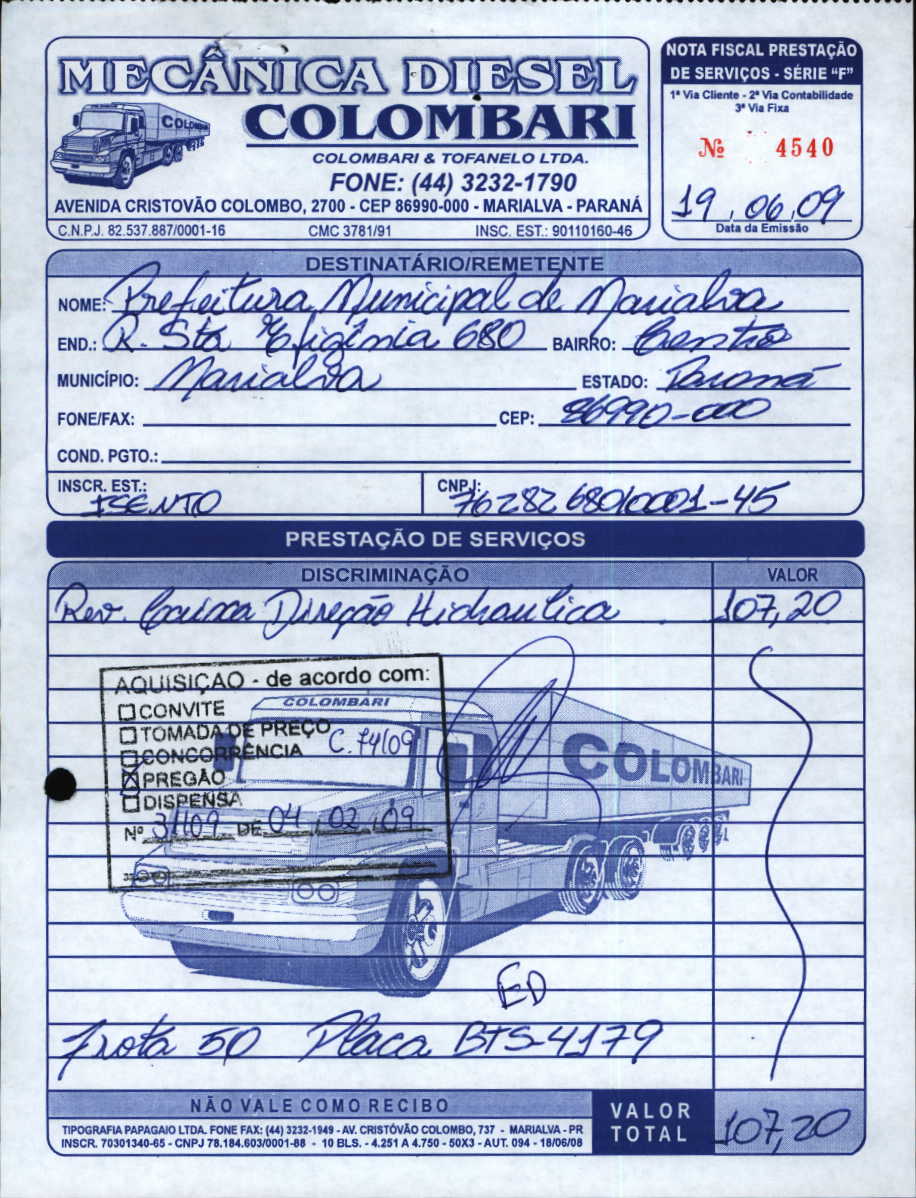 MECÂNICA DIESEL
COLOMBARI
COLOMBARI & TOFANELO LTDA.
FONE: (44) 3232-1790
AVENIDA CRISTOVÃO COLOMBO, 2700 - CEP 86990-000 - MARIALVA - PARANÁ
C.N.P.J. 82.537.887/0001-16 CMC 3781/91 INSC. EST.: 90110160-46
NOTA FISCAL PRESTAÇÃO
DE SERVIÇOS - SÉRIE “F”
1ª Via Cliente - 2ª Via Contabilidade
3ª Via Fixa
Nº 4540
19, 06, 09
Data da Emissão
DESTINATÁRIO/REMETENTE
NOME: Prefeitura Municipal de Marialva
END.: R. Sta Efigênia 680 BAIRRO: Centro
MUNICÍPIO: Marialva ESTADO: Paraná
FONE/FAX: CEP: 86990-000
COND. PGTO.:
INSCR. EST.: ISENTO CNPJ: 76282680/0001-45
PRESTAÇÃO DE SERVIÇOS
DISCRIMINAÇÃO VALOR
Rev. Caixa Direção Hidraulica 107,20
AQUISIÇAO - de acordo com:
CONVITE
TOMADA DE PREÇO
C. 74/09
CONCORRENCIA
PREGÃO
DISPENSA
Nº 31/09 DE 04 / 02 / 09
COLOMBARI
COLOMBARI
ED
Frota 50 Placa BTS-4179
NÃO VALE COMO RECIBO
TIPOGRAFIA PAPAGAIO LTDA. FONE FAX: (44) 3232-1949 - AV. CRISTÓVÃO COLOMBO, 737 - MARIALVA - PR
INSCR. 70301340-65 - CNPJ 78.184.603/0001-88 - 10 BLS. - 4.251 A 4.750 - 50X3 - AUT. 094 - 18/06/08
VALOR
TOTAL 107,20